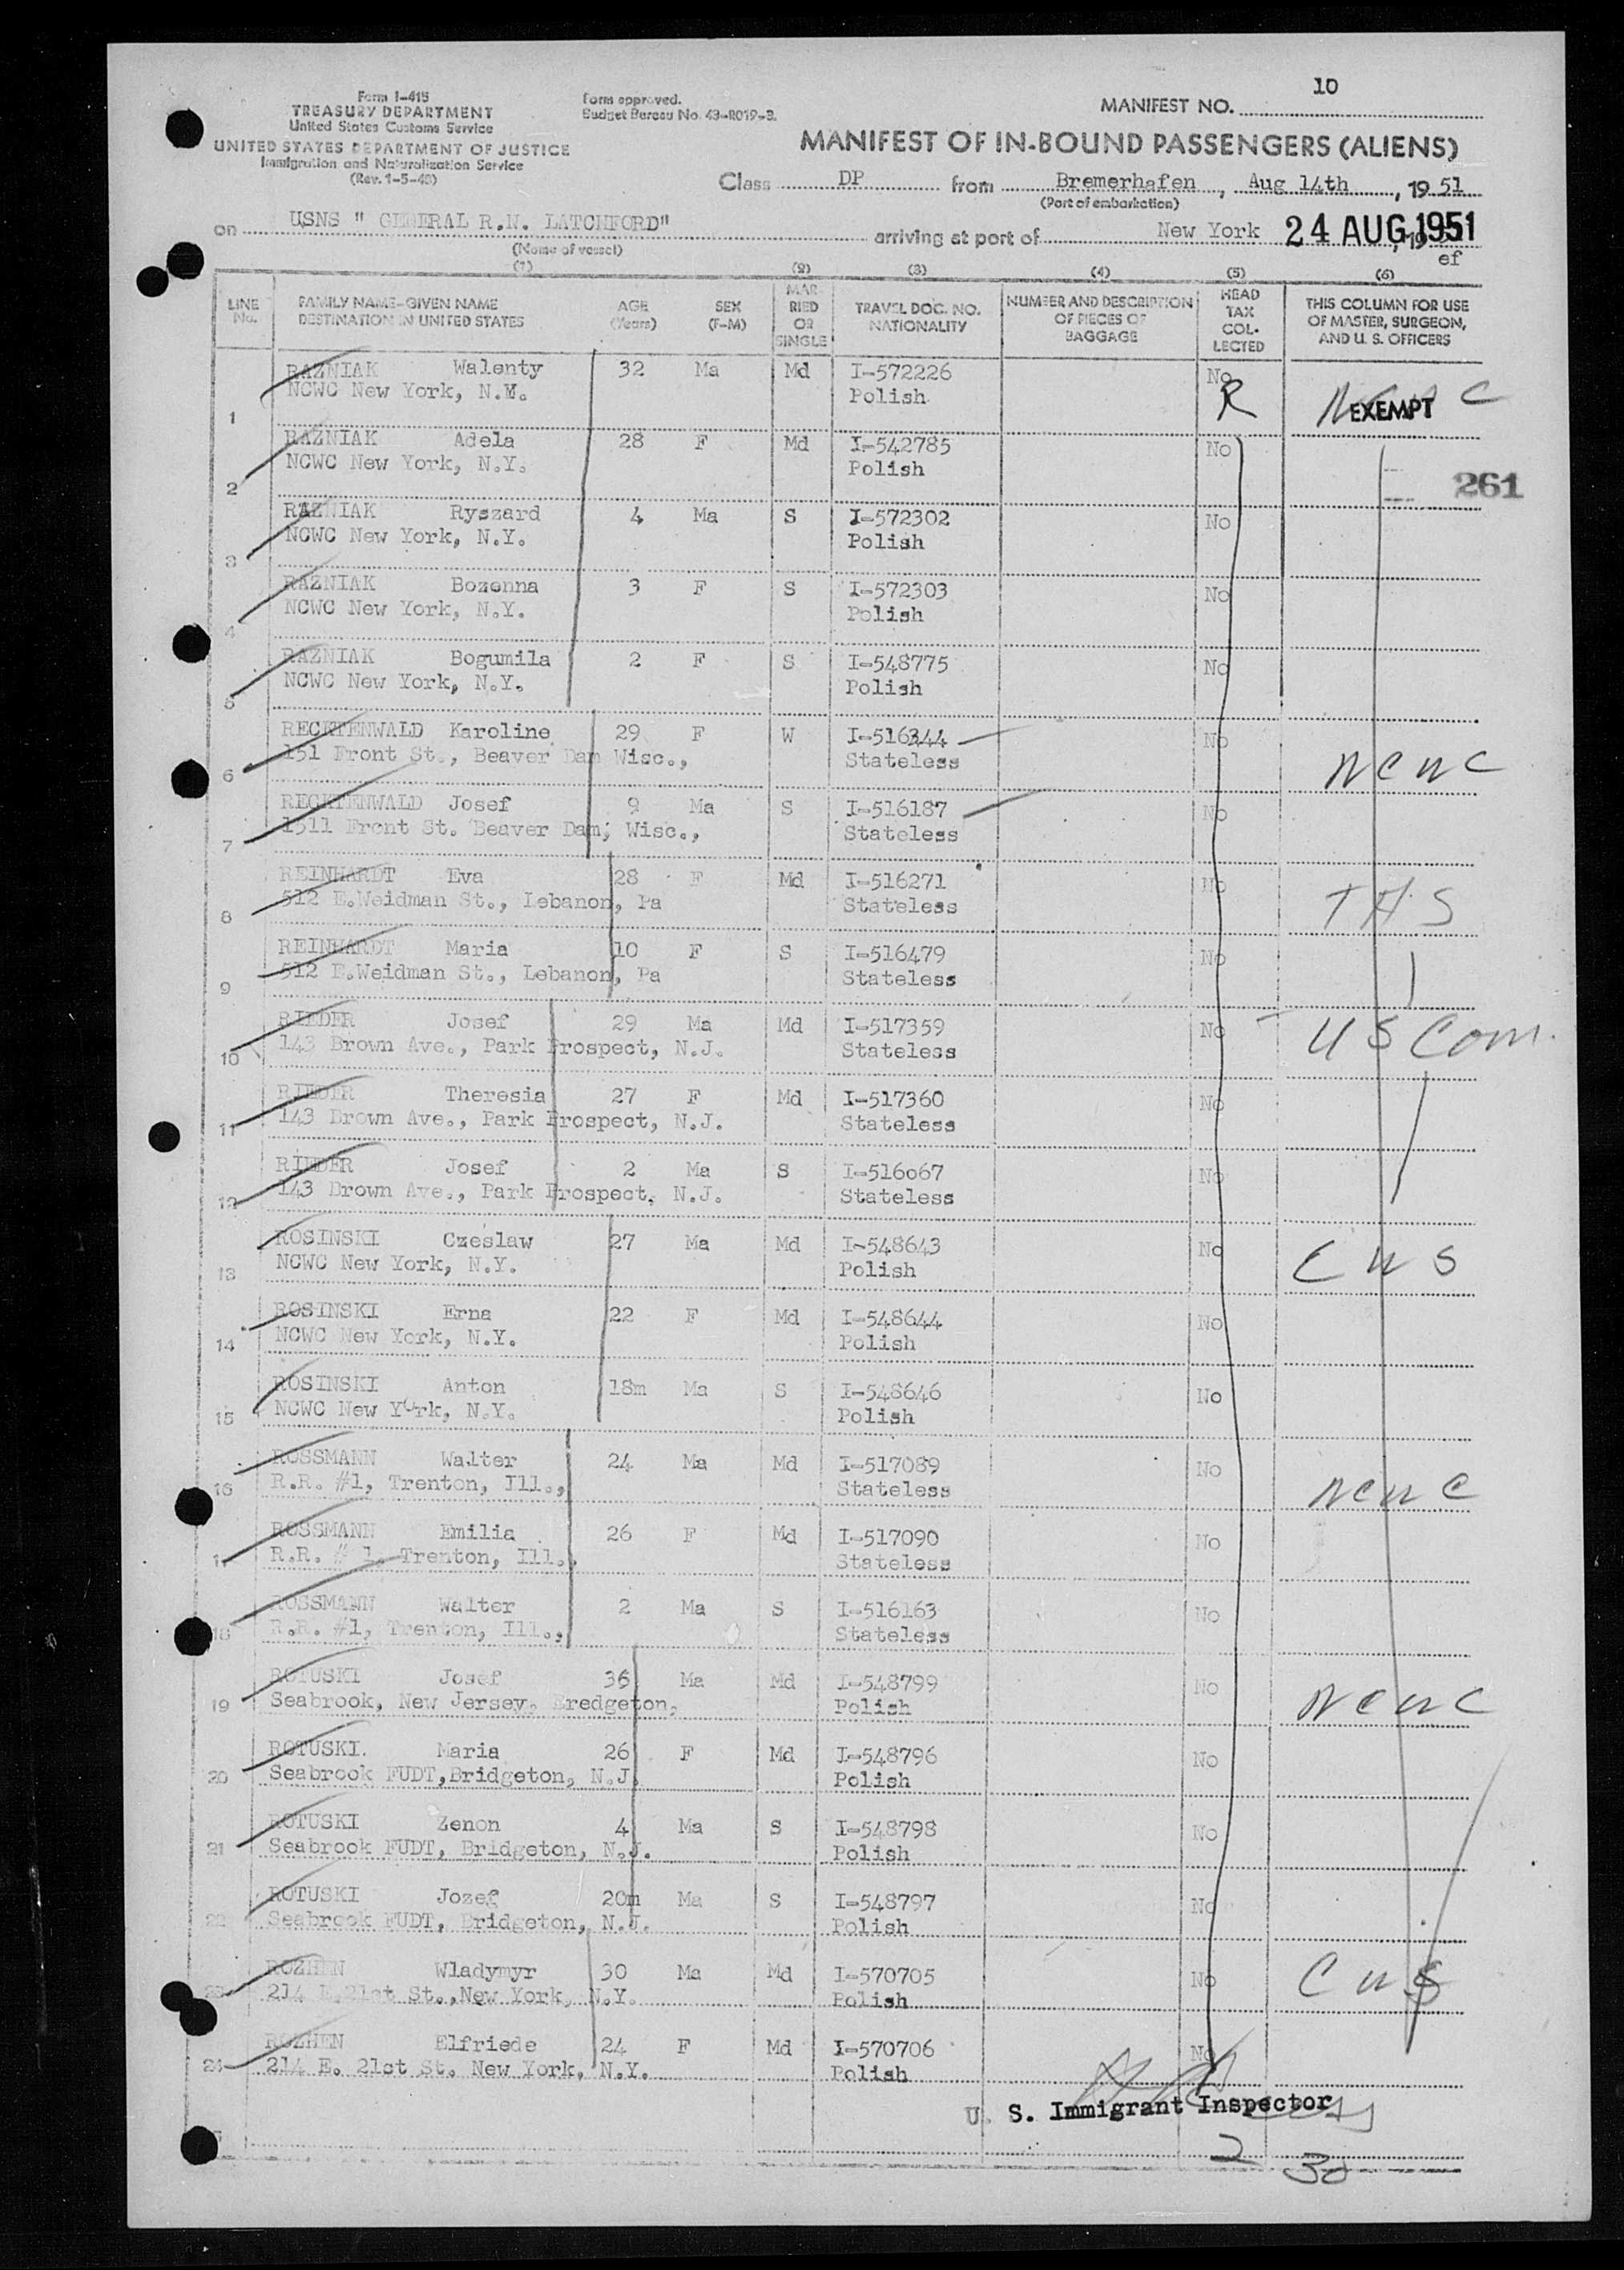 10
Form I-415
TREASURY DEPARTMENT
United States Customs Service
UNITED STATES DEPARTMENT OF JUSTICE
Immigration and Naturalization Service
(Rev. 1-5-48)
Form approved.
Budget Bureau No. 43-R019-3.
MANIFEST NO.
MANIFEST OF IN-BOUND PASSENGERS (ALIENS)
Class DP from Bremerhafen, Aug 14th, 19 51
(Port of embarkation)
on USNS " GENERAL R.M. LATCHFORD" arriving at port of New York 24 AUG 1951
(Name of vessel)
ef
(1) (2) (3) (4) (5) (6)
LINE No. FAMILY NAME-GIVEN NAME DESTINATION IN UNITED STATES AGE (Years) SEX (F-M) MARRIED OR SINGLE TRAVEL DOC. NO. NATIONALITY NUMBER AND DESCRIPTION OF PIECES OF BAGGAGE HEAD TAX COLLECTED THIS COLUMN FOR USE OF MASTER, SURGEON, AND U. S. OFFICERS
RAZNIAK Walenty 32 Ma Md I-572226 No
1 NCWC New York, N.Y. Polish R EXEMPT
RAZNIAK Adela 28 F Md I-542785 No
2 NCWC New York, N.Y. Polish 261
RAZNIAK Ryszard 4 Ma S I-572302 No
3 NCWC New York, N.Y. Polish
RAZNIAK Bozenna 3 F S I-572303 No
4 NCWC New York, N.Y. Polish
RAZNIAK Bogumila 2 F S I-548775 No
5 NCWC New York, N.Y. Polish
RECKTENWALD Karoline 29 F W I-516344 No
6 151 Front St., Beaver Dam Wisc., Stateless NCWC
RECKTENWALD Josef 9 Ma S I-516187 No
7 1511 Front St. Beaver Dam, Wisc., Stateless
REINHARDT Eva 28 F Md I-516271 No
8 512 E.Weidman St., Lebanon, Pa Stateless THS
REINHARDT Maria 10 F S I-516479 No
9 512 E.Weidman St., Lebanon, Pa Stateless
RIEDER Josef 29 Ma Md I-517359 No US Com.
10 143 Brown Ave., Park Prospect, N.J. Stateless
RIEDER Theresia 27 F Md I-517360 No
11 143 Brown Ave., Park Prospect, N.J. Stateless
RIEDER Josef 2 Ma S I-516067 No
12 143 Brown Ave., Park Prospect, N.J. Stateless
ROSINSKI Czeslaw 27 Ma Md I-548643 No CWS
13 NCWC New York, N.Y. Polish
ROSINSKI Erna 22 F Md I-548644 No
14 NCWC New York, N.Y. Polish
ROSINSKI Anton 18m Ma S I-548646 No
15 NCWC New York, N.Y. Polish
ROSSMANN Walter 24 Ma Md I-517089 No
16 R.R. #1, Trenton, Ill., Stateless NCWC
ROSSMANN Emilia 26 F Md I-517090 No
17 R.R. # 1, Trenton, Ill., Stateless
ROSSMANN Walter 2 Ma S I-516163 No
18 R.R. #1, Trenton, Ill., Stateless
ROTUSKI Josef 36 Ma Md I-548799 No
19 Seabrook, New Jersey, Bredgeton, Polish NCWC
ROTUSKI. Maria 26 F Md I-548796 No
20 Seabrook FUDT,Bridgeton, N.J. Polish
ROTUSKI Zenon 4 Ma S I-548798 No
21 Seabrook FUDT, Bridgeton, N.J. Polish
ROTUSKI Jozef 20m Ma S I-548797 No
22 Seabrook FUDT, Bridgeton, N.J. Polish
ROZHEN Wladymyr 30 Ma Md I-570705 No CWS
23 214 E.21st St.,New York, N.Y. Polish
ROZHEN Elfriede 24 F Md I-570706 No
24 214 E. 21st St. New York, N.Y. Polish
U. S. Immigrant Inspector
2 30